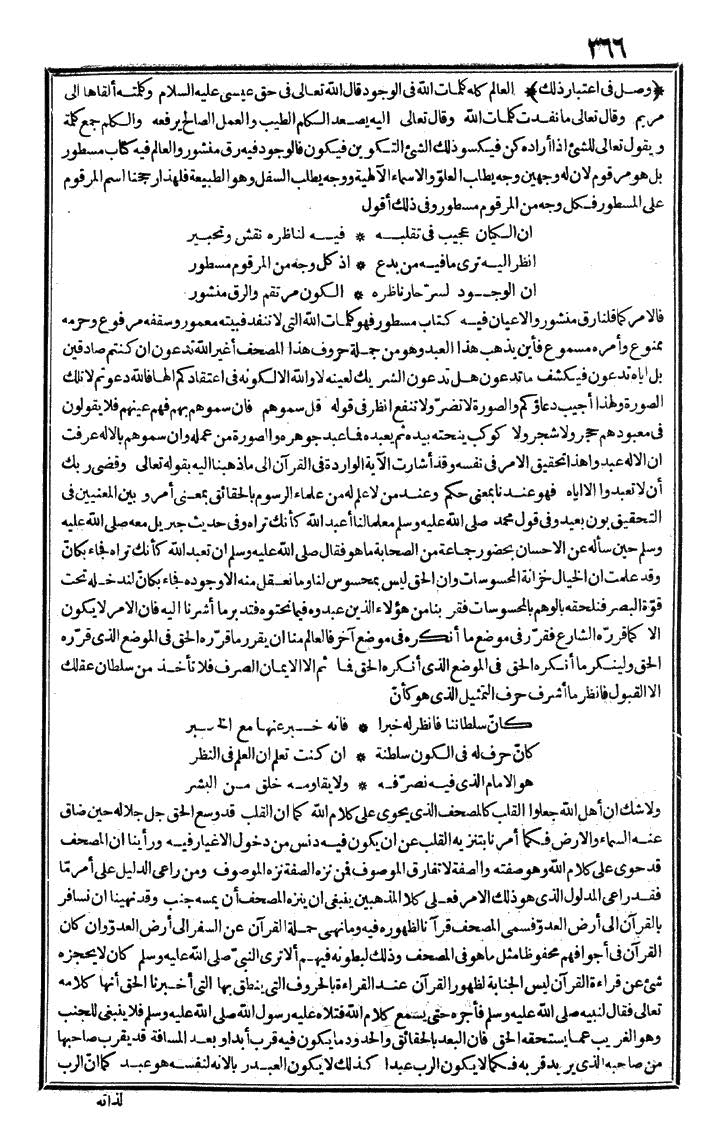 ٣٦٦
﴿وصل فى اعتبار ذلك﴾ العالم كله كلمات الله فى الوجود قال الله تعالى فى حق عيسى عليه السلام وكلمته ألقاها الى
مريم وقال تعالى ما نفدت كلمات الله وقال تعالى اليه يصعد الكلم الطيب والعمل الصالح يرفعه والكلم جمع كلمة
ويقول تعالى للشئ اذا أراده كن فيكسو ذلك الشئ التكوين فيكون فالوجود فيه رق منشور والعالم فيه كتاب مسطور
بل هو مرقوم لان له وجهين وجه يطلب العلو والاسماء الالهية ووجه يطلب السفل وهو الطبيعة فلهذا رجحنا اسم المرقوم
على المسطور فكل وجه من المرقوم مسطور وفى ذلك أقول
ان الكيان عجيب فى تقلبه * فيه لناظره نقش وتحبير
انظر اليه ترى ما فيه من بدع * اذ كل وجه من المرقوم مسطور
ان الوجود لسرّ حار ناظره * الكون مرتقم والرق منشور
فالامر كما قلنا رق منشور والاعيان فيه كتاب مسطور فهو كلمات الله التى لا تنفد فبيته معمور وسقفه مرفوع وحرمه
ممنوع وأمره مسموع فأين يذهب هذا العبد وهو من جملة حروف هذا المصحف أغير الله تدعون ان كنتم صادقين
بل اياه تدعون فيكشف ما تدعون هل تدعون الشريك لعينه لا والله الا لكونه فى اعتقادكم الها فالله دعوتم لا تلك
الصورة ولهذا أجيب دعاؤكم والصورة لا تضرّ ولا تنفع انظر فى قوله قل سموهم فان سموهم بهم فهم عينهم فلا يقولون
فى معبودهم حجر ولا شجر ولا كوكب ينحته بيده ثم يعبده فما عبد جوهره والصورة من عمله وان سموهم بالاله عرفت
ان الاله عبدوا هذا تحقيق الامر فى نفسه وقد أشارت الآية الواردة فى القرآن الى ما ذهبنا اليه بقوله تعالى وقضى ربك
أن لا تعبدوا الا اياه فهو عندنا بمعنى حكم وعند من لا علم له من علماء الرسوم بالحقائق بمعنى أمر وبين المعنيين فى
التحقيق بون بعيد وفى قول محمد صلى الله عليه وسلم معلما لنا أعبد الله كأنك تراه وفى حديث جبريل معه صلى الله عليه
وسلم حين سأله عن الاحسان بحضور جماعة من الصحابة ما هو فقال صلى الله عليه وسلم ان تعبد الله كأنك تراه فجاء بكأنّ
وقد علمت ان الخيال خزانة المحسوسات وان الحق ليس بمحسوس لنا وما نعقل منه الا وجوده فجاء بكأنّ لندخله تحت
قوّة البصر فنلحقه بالوهم بالمحسوسات فقربنا من هؤلاء الذين عبدوه فيما نحتوه فتدبر ما أشرنا اليه فان الامر لا يكون
الا كما قرره الشارع فقرّر فى موضع ما أنكره فى موضع آخر فالعالم منا ان يقرر ما قرّره الحق فى الموضع الذى قرّره
الحق ولينكر ما أنكره الحق فى الموضع الذى أنكره الحق فما ثم الا الايمان الصرف فلا تأخذ من سلطان عقلك
الا القبول فانظر ما أشرف حرف التمثيل الذى هو كأنّ
كأنّ سلطاننا فانظر له خبرا * فانه خبر عنها مع الخبر
كأنّ حرف له فى الكون سلطنة * ان كنت تعلم ان العلم فى النظر
هو الامام الذى فيه نصرّفه * ولا يقاومه خلق من البشر
ولا شك ان أهل الله جعلوا القلب كالمصحف الذى يحوى على كلام الله كما ان القلب قد وسع الحق جل جلاله حين ضاق
عنه السماء والارض فكما أمرنا بتنزيه القلب عن ان يكون فيه دنس من دخول الاغيار فيه ورأينا ان المصحف
قد حوى على كلام الله وهو صفته والصفة لا تفارق الموصوف فمن نزه الصفة نزه الموصوف ومن راعى الدليل على أمر مّا
فقد راعى المدلول الذى هو ذلك الامر فعلى كلا المذهبين ينبغى ان ينزه المصحف أن يمسه جنب وقد نهينا ان نسافر
بالقرآن الى أرض العدوّ فسمى المصحف قرآنا لظهوره فيه وما نهى حملة القرآن عن السفر الى أرض العدوّ وان كان
القرآن فى أجوافهم محفوظا مثل ما هو فى المصحف وذلك لبطونه فيهم ألا ترى النبىّ صلى الله عليه وسلم كان لا يحجزه
شئ عن قراءة القرآن ليس الجنابة لظهور القرآن عند القراءة بالحروف التى ينطق بها التى أخبرنا الحق أنها كلامه
تعالى فقال لنبيه صلى الله عليه وسلم فأجره حتى يسمع كلام الله فتلاه عليه رسول الله صلى الله عليه وسلم فلا ينبغى للجنب
وهو الغريب عما يستحقه الحق فان البعد بالحقائق والحدود ما يكون فيه قرب أبدا وبعد المسافة قد يقرب صاحبها
من صاحبه الذى يريد قربه فكما لا يكون الرب عبدا كذلك لا يكون العبد ربا لانه لنفسه هو عبد كما انّ الرب
لذاته